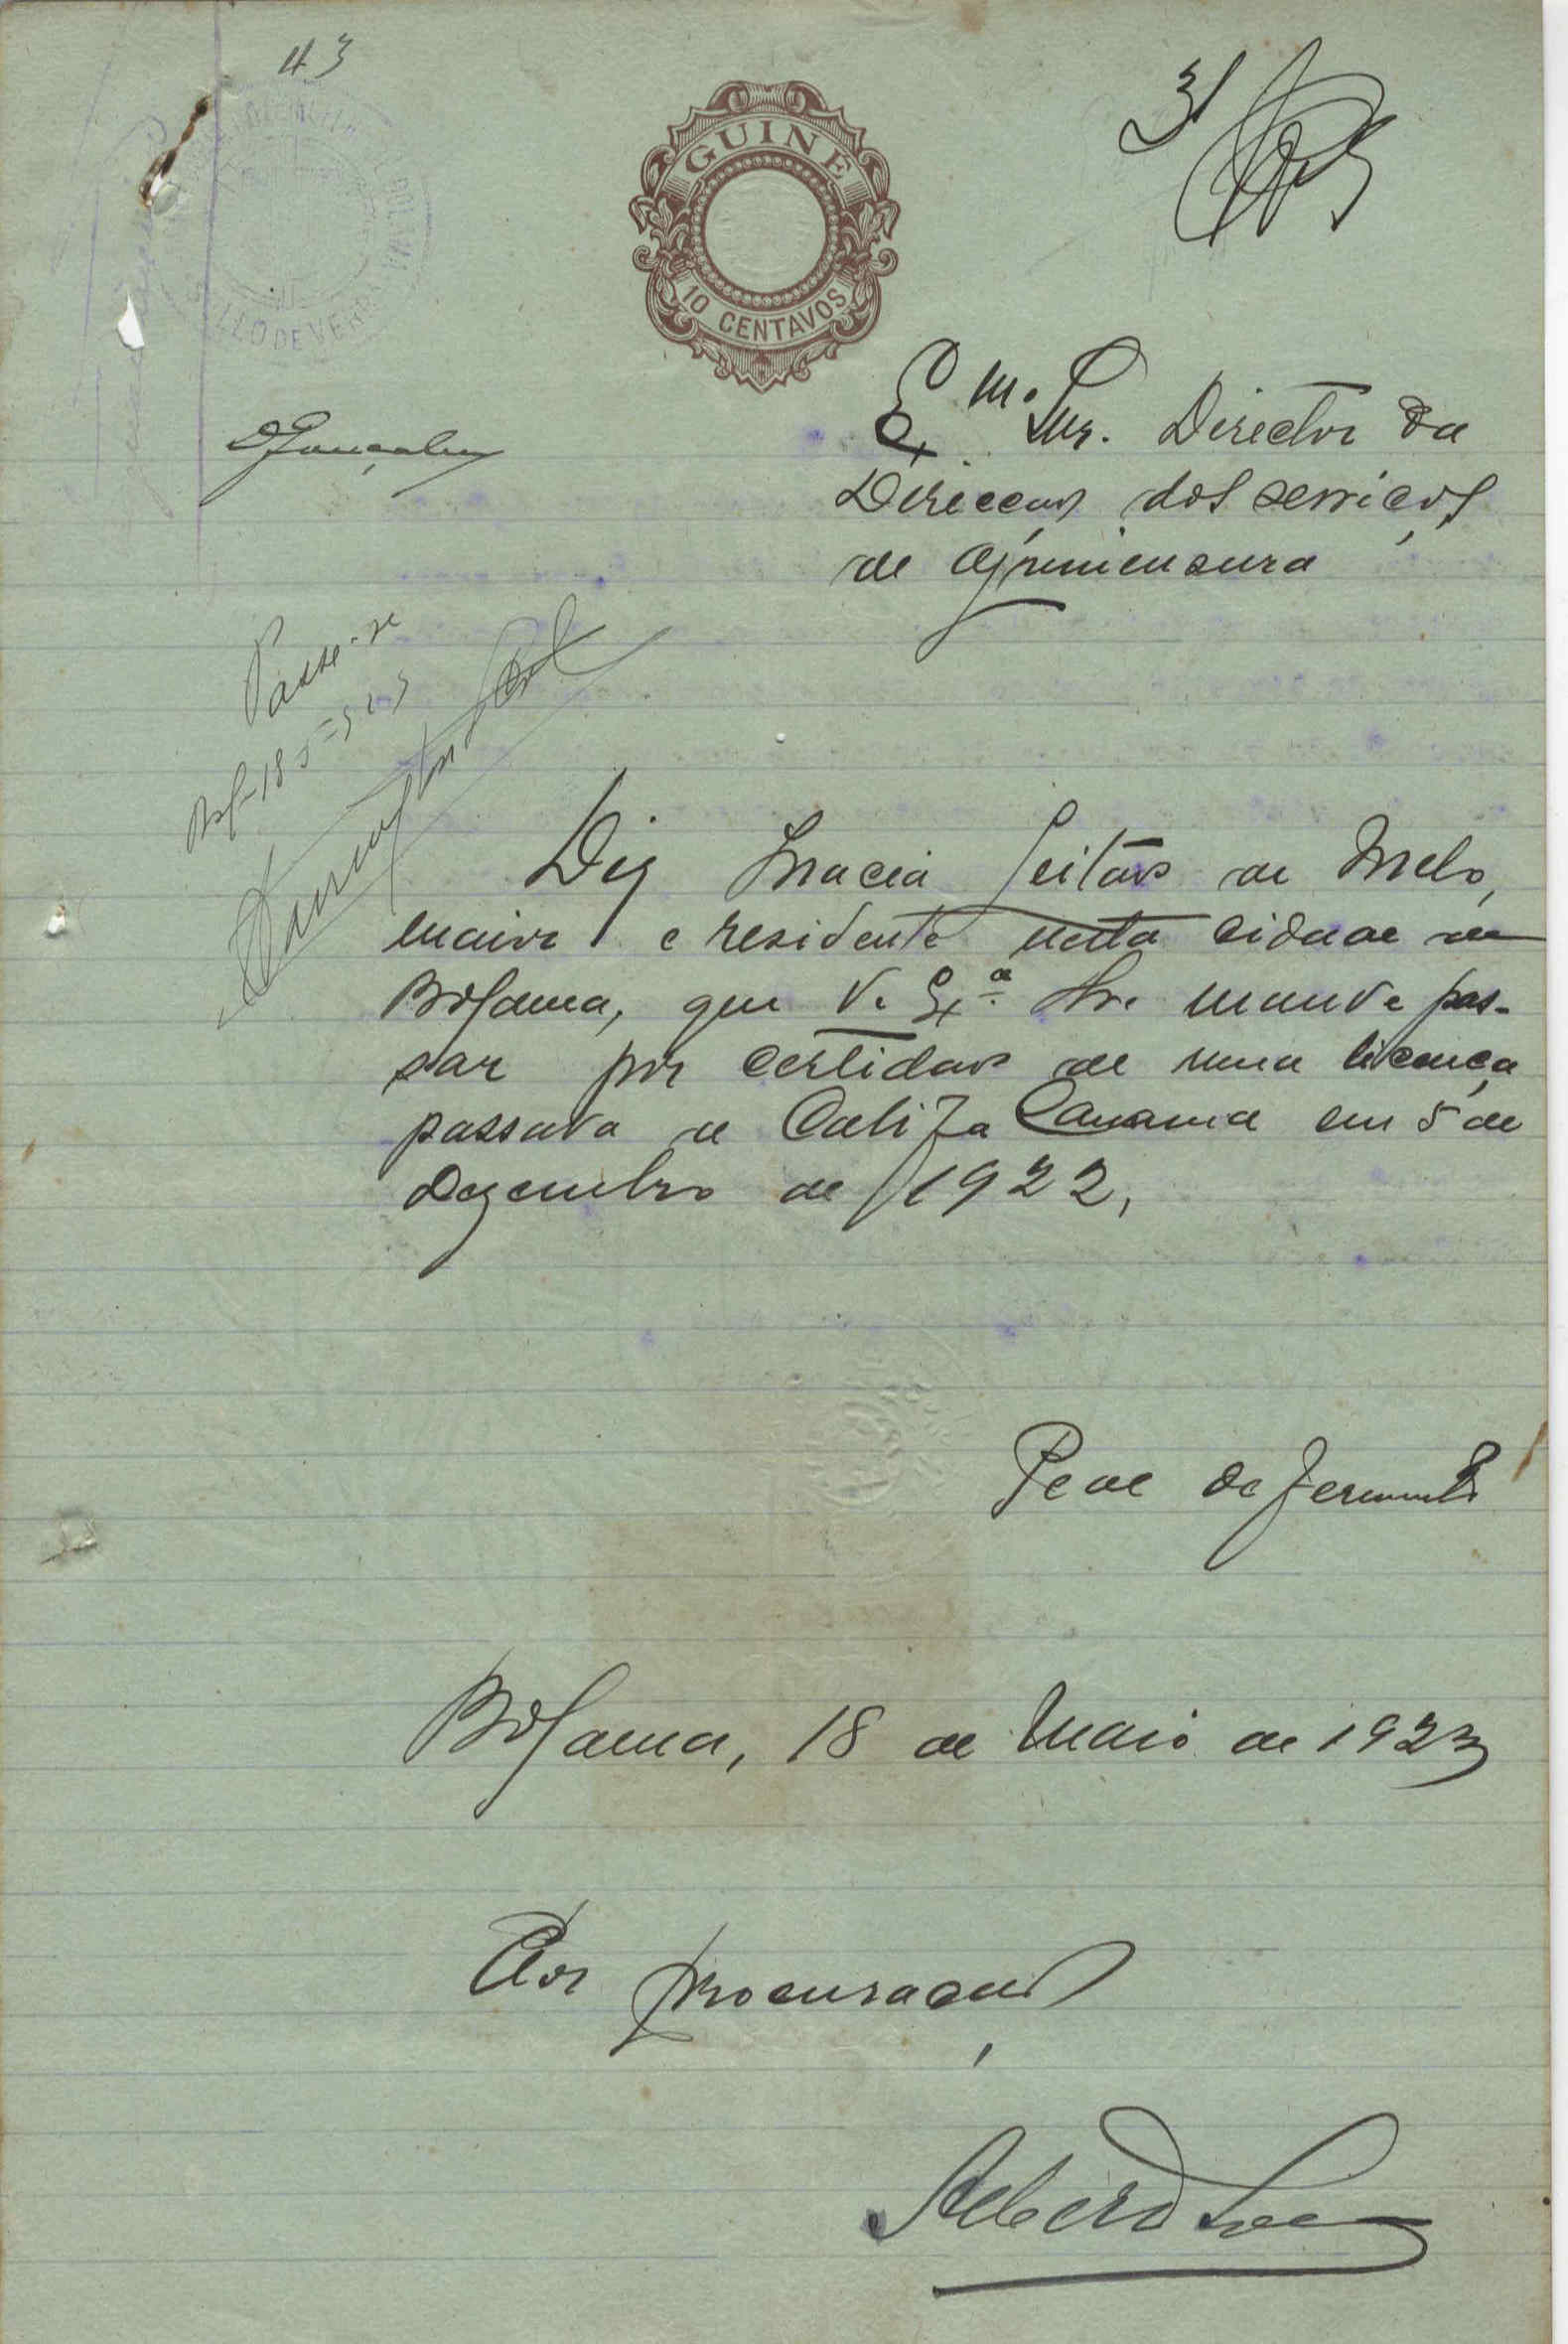 43
31
GUINÉ
10 CENTAVOS
SELLO DE VERBA
BOLAMA
DGonçalves
Ex.mo Snr. Director da
Direcção dos serviços
de agrimensura
Passe-se
Bol- 18-5-923
Diz Inacia Leitão de Melo,
maior e residente nesta cidade de
Bolama, que V. Ex.ª lhe mande pas-
sar por certidão de uma licença
passada a Califa Camara em 5 de
Dezembro de 1922,
Pede deferimento
Bolama, 18 de Maio de 1923
Por procuração